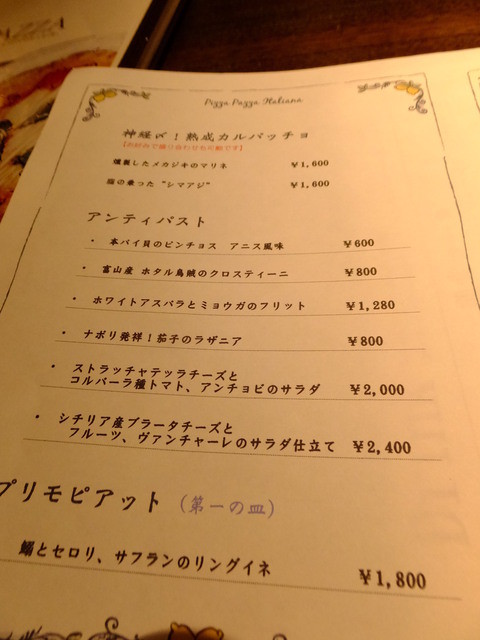 Pizza Pazza Italiana
神経〆！熟成カルパッチョ
【お好みで盛り合わせも可能です】
燻製したメカジキのマリネ ¥1,600
脂の乗った "シマアジ" ¥1,600
アンティパスト
・ 本バイ貝のピンチョス アニス風味 ¥600
・ 富山産 ホタル烏賊のクロスティーニ ¥800
・ ホワイトアスパラとミョウガのフリット ¥1,280
・ ナポリ発祥！茄子のラザニア ¥800
・ ストラッチャテッラチーズと
コルバーラ種トマト、アンチョビのサラダ ¥2,000
・ シチリア産ブラータチーズと
フルーツ、ヴァンチャーレのサラダ仕立て ¥2,400
プリモピアット (第一の皿)
鰯とセロリ、サフランのリングイネ ¥1,800